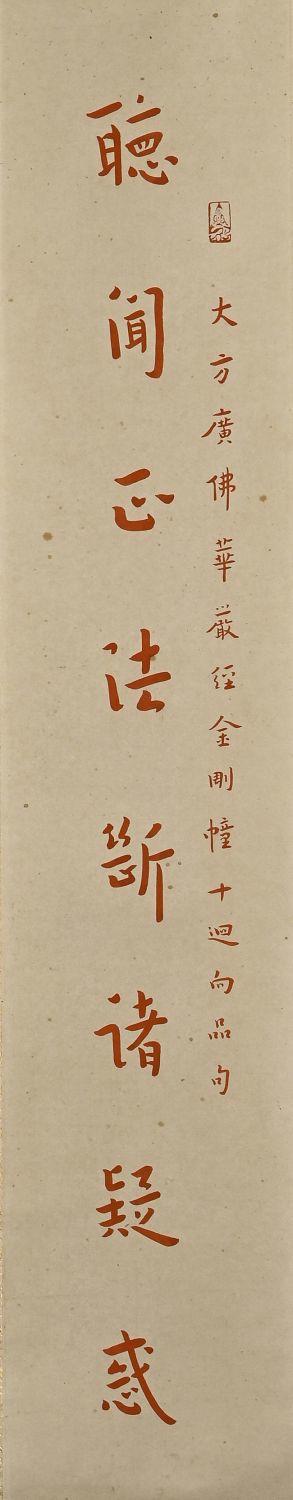 大方廣佛華嚴經金剛幢十迴向品句
聽聞正法斷諸疑惑